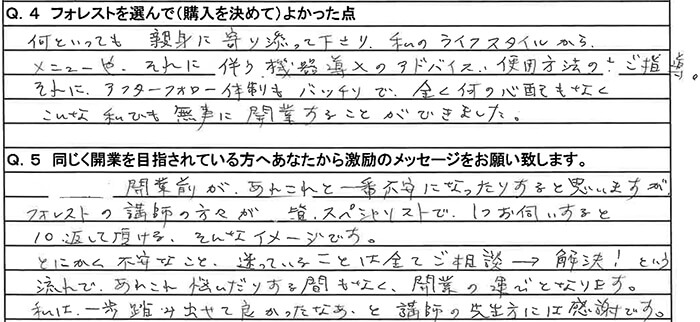 Q. 4 フォレストを選んで(購入を決めて)よかった点
何といっても 親身に寄り添って下さり、私のライフスタイルから、
メニューや、それに 伴う機器導入のアドバイス、使用方法の ご指導。
それに、アフターフォロー体制もバッチリで、全く何の心配もなく
こんな私でも無事に開業することができました。
Q. 5 同じく開業を目指されている方へあなたから激励のメッセージをお願い致します。
開業前が、あれこれと一番不安になったりすると思いますが、
フォレストの講師の方々が 皆、スペシャリストで、1つお伺いすると
10返して頂ける、そんなイメージです。
とにかく不安なこと、迷っていることは全てご相談→解決!という
流れで、あれこれ悩んだりする間もなく、開業の運びとなります。
私は、一歩踏み出せて良かったなあ、と講師の先生方には感謝です。